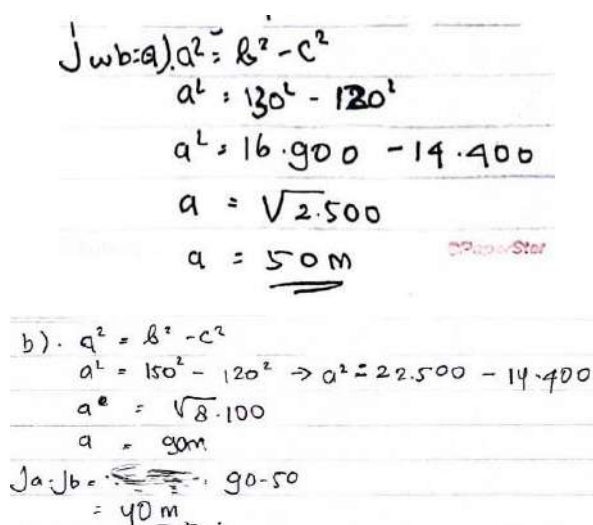 Jwb: a). a² = b² - c²
a² = 130² - 120²
a² = 16.900 - 14.400
a = √2.500
a = 50 m
PaperStar
b). a² = b² - c²
a² = 150² - 120² → a² = 22.500 - 14.400
a = √8.100
a = 90m
Ja-Jb = 90-50
= 40 m